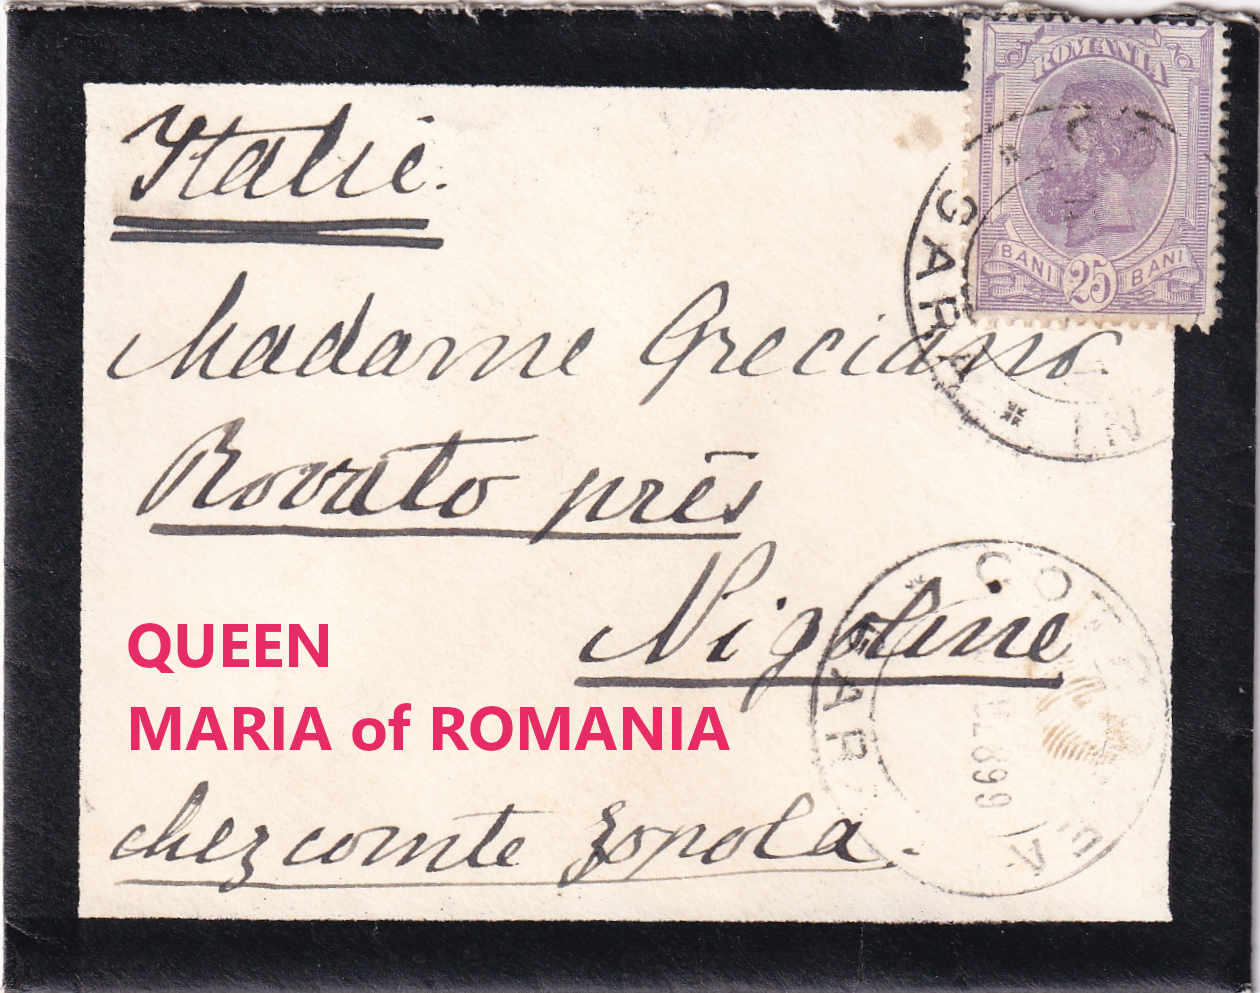 Italie.
ROMANIA
BANI 25 BANI
Madame Greciano
Rovato près
Nigoline
QUEEN
MARIA of ROMANIA
chez comte Zopola.
SARA
899